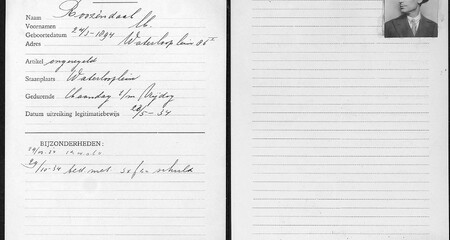 Naam Roozendaal
Voornamen M.
Geboortedatum 24/1-1894
Adres Waterlooplein
Artikel ongeregeld
Staanplaats Waterlooplein
Gedurende Maandag t/m Vrijdag
Datum uitreiking legitimatiebewijs 28/5-34
BIJZONDERHEDEN:
29/10-34 met schuld